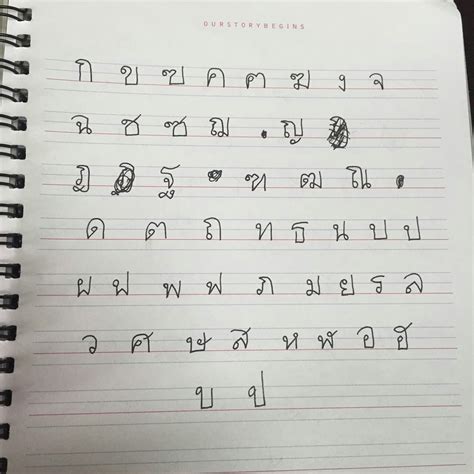 OURSTORYBEGINS
ก ข ฃ ค ฅ ฆ ง จ
ฉ ช ซ ฌ ญ
ฏ ฐ ฑ ฒ ณ
ด ต ถ ท ธ น บ ป
ผ ฝ พ ฟ ภ ม ย ร ล
ว ศ ษ ส ห ฬ อ ฮ
บ ป